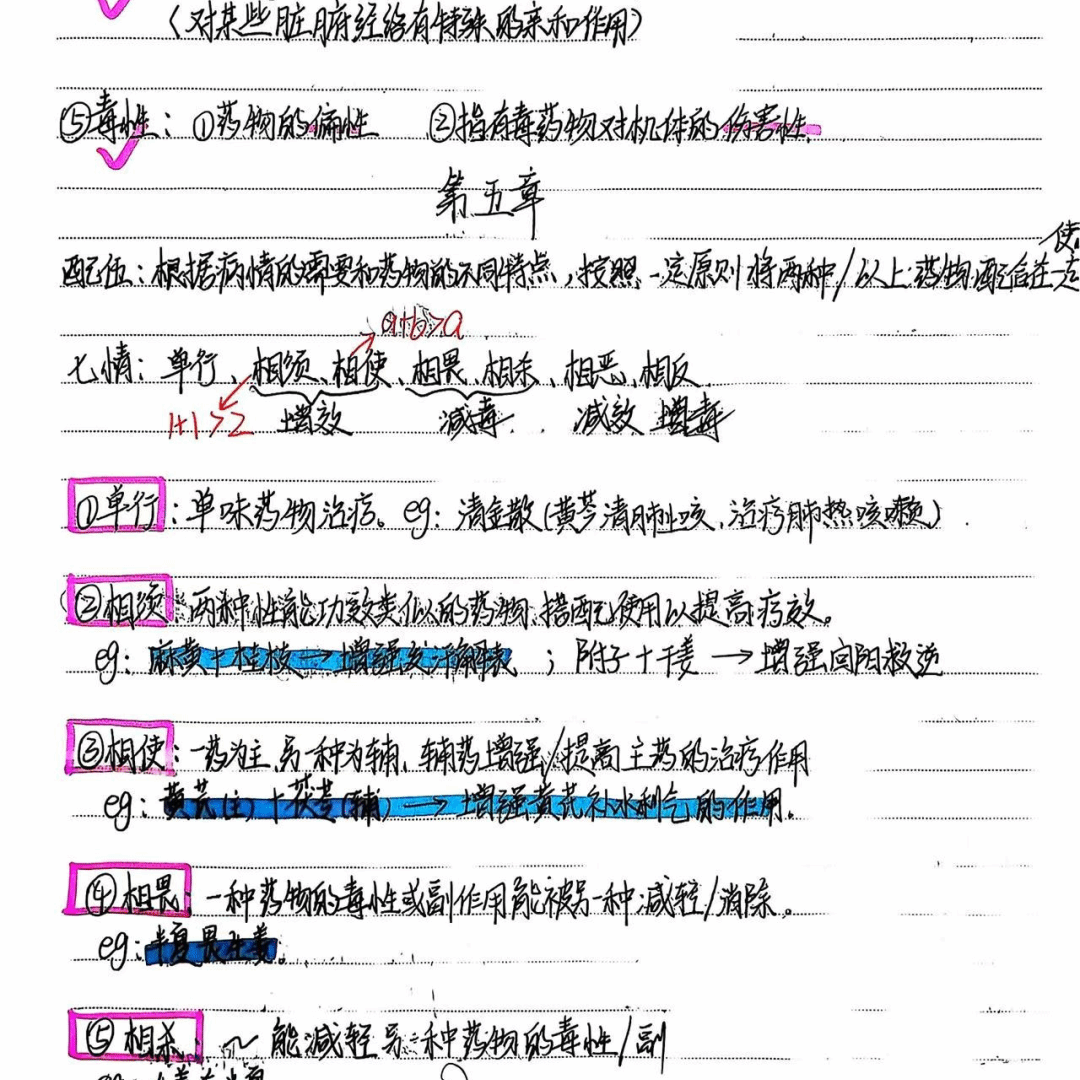 (对某些脏腑经络有特殊的亲和作用)
⑤毒性: ①药物的偏性 ②指有毒药物对机体的伤害性.
第五章
使
配伍: 根据病情的需要和药物的不同特点, 按照一定原则将两种/以上药物配合在一起
a+b>a
七情: 单行、相须、相使、相畏、相杀、相恶、相反.
1+1>2 增效 减毒 减效 增毒
①单行: 单味药物治疗。eg: 清金散(黄芩清肺止咳, 治疗肺热咳嗽)
②相须: 两种性能功效类似的药物搭配使用以提高疗效。
eg: 麻黄+桂枝→增强发汗解表 ; 附子+干姜→增强回阳救逆
③相使: 一药为主, 另一种为辅, 辅药增强/提高主药的治疗作用
eg: 黄芪(主)+茯苓(辅)→增强黄芪补水利气的作用。
④相畏: 一种药物的毒性或副作用能被另一种减轻/消除。
eg: 半夏畏生姜。
⑤相杀: ~ 能减轻另一种药物的毒性/副